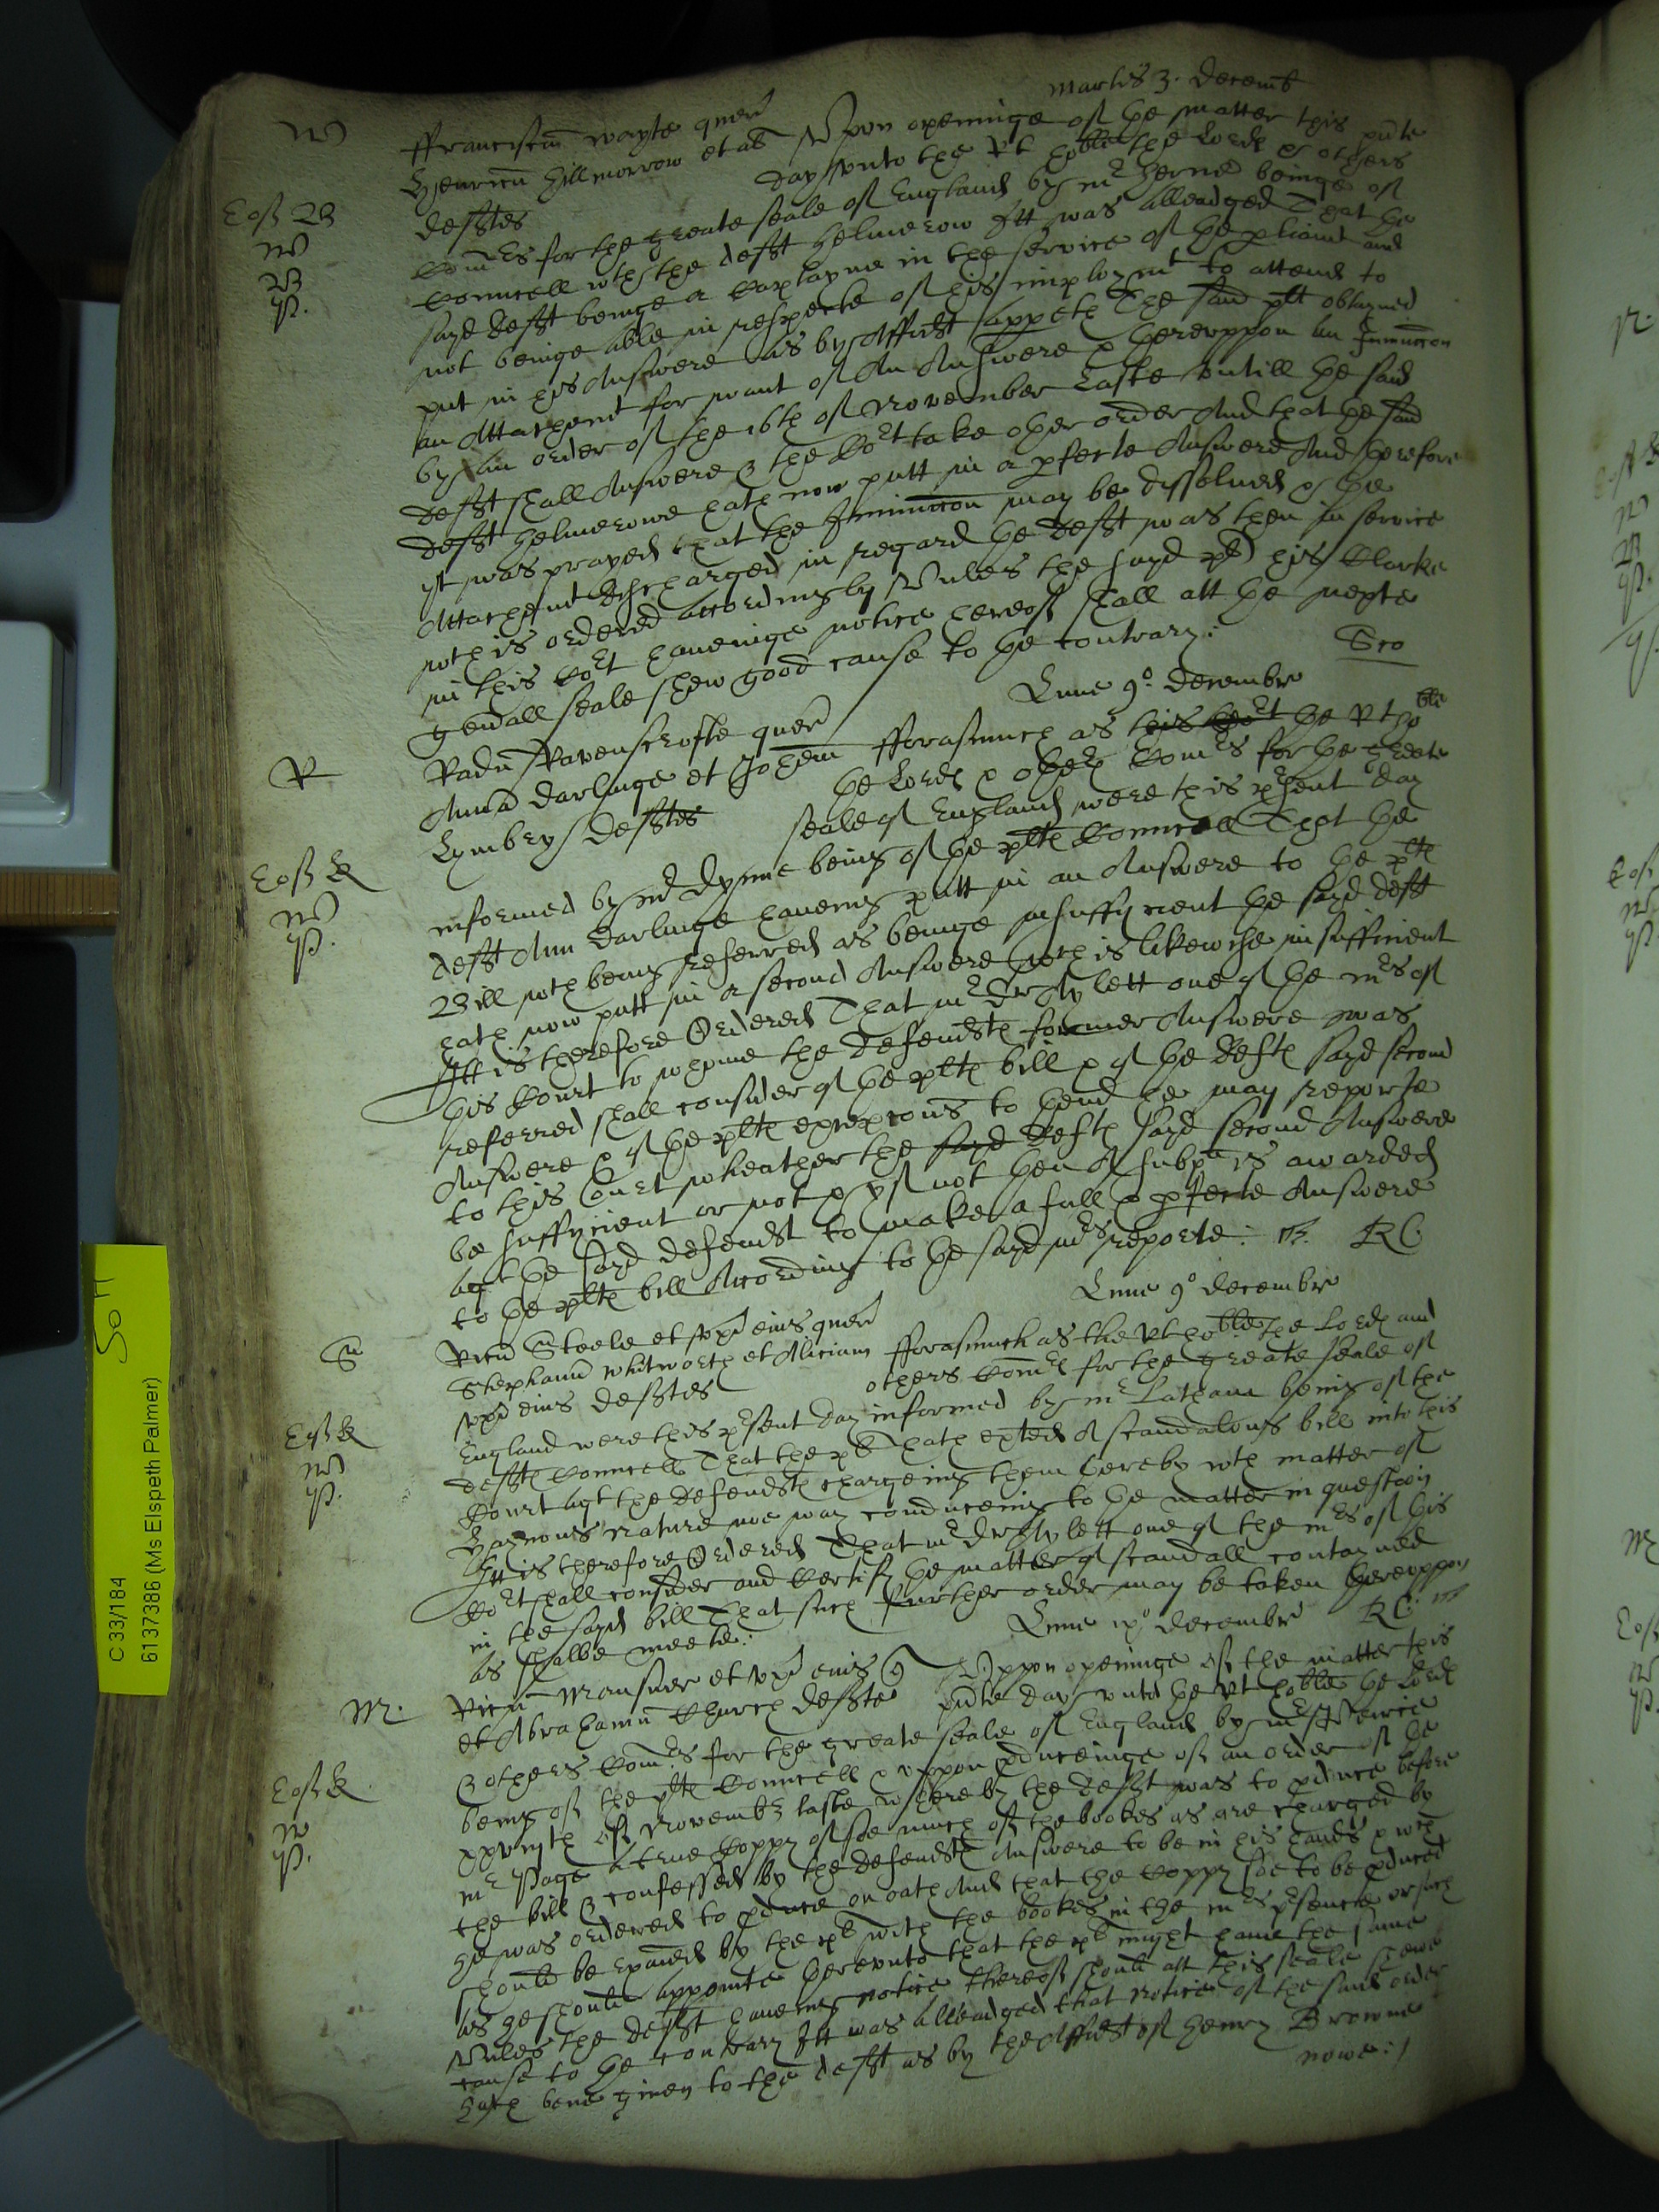 Martis 3. Decemb
W
ffranciscu wayte quer
Henricu Gillmorrow et al Uppon openinge of the matter this pnte
deftes day unto the rt ho:ble the Lords & others
Eoss B
W
B
P.
Comrs for the greate seale of England by mr Herne beinge of
Councell wth the deft Helmerow Itt was alleadged That the
sayd deft beinge a Captayne in the service of the pliamt and
not beinge able in respecte of his imploymt to attend to
put in his Answere as by Affidt appeth The said plt obtayned
an Attachemt for want of An Answere & thereuppon an Iniunccon
by an order of the 16th of November laste untill the said
deft shall Answere & the Cort take other order And that the said
deft Helmerowe hath now putt in a pfecte Answere And therefore
it was prayed that the Iniunccon may be dissolued & the
Attachemt discharged in regard the deft was then in service
wch is ordered accordingly Unles the sayd plt his Clarke
in this Cort haueinge notice hereof shall att the nexte
genall seale shew good cause to the contrary:
Sco
Lune 9o. Decembr
R
Radu Ravenscrofte quer
Anna Darlinge et Johem fforasmuch as this Cort the rt ho:ble
Lymbey deftes the Lords & other Comrs for the greate
seale of England were this present day
Eoss k
W
P.
informed by mr Dynne being of the plts Councell That the
deft Ann Darlinge haueing putt in an Answere to the plts
Bill wch being referred as beinge insuffycient the sayd deft
hath now putt in a second Answere wch is likewise insufficient
Itt is therefore Ordered That mr Dr Aylett one of the mrs of
this Court to whome the defendts former Answere was
referred shall consider of the plts bill & of the defts sayd second
Answere & of the plts excepcons to them he may reporte
to this Court wheather the sayd defts sayd second Answere
be suffycient or not & yf not then A subpa is awarded
agt the sayd defendt to make a full & pfecte Answere
to the plts bill According to the sayd mrs reporte: RC
Lune 9o December
S
Ricu Steele et uxr eius quer
Stephanu Whitworth et Aliciam fforasmuch as the rt ho:ble the Lords and
uxr eius deftes others Comrs for the greate seale of
Eoss k
W
P.
England were this present day informed by mr Latham being of the
defts Councell That the plt hath exhted A scandalous bill into this
Court agt the defendts chargeing them thereby wth matter of
Haynous nature noe way conduceing to the matter in question
Itt is therefore Ordered That mr Dr Aylett one of the mrs of this
Cort shall consider and Certify the matter of scandall contayned
in the sayd bill That such further order may be taken thereuppon
as shalbe meete: RC:
Lune ixo Decembr
M.
Ricu Mansner et uxr eius q Uppon openinge of the matter this
et Abrahamu Church defte pnte day unto the rt ho:ble the Lords
Eoss k
W
P.
& others Comrs for the greate seale of England by mr
being of the plts Councell & uppon pduceinge of an order of the
xxviijth of Novembr laste whereby the deft was to pduce before
mr Page A true Coppy of soe much of the bookes as are charged by
the bill & confessed by the defendts Answere to be in his hands & wch
he was ordered to pduce on oath And that the Coppy soe to be pduced
should be examed by the plt with the bookes in the mrs psence or such
as he should appointe thereunto that the plt might haue the same
Unles the deft haueing notice thereof should att this seale shewe
cause to the contrary Itt was alleadged that notice of the said order
hath bene given to the deft as by the Affidt of Henry Browne
nowe:/
SoH
C 33/184
6137386 (Ms Elspeth Palmer)